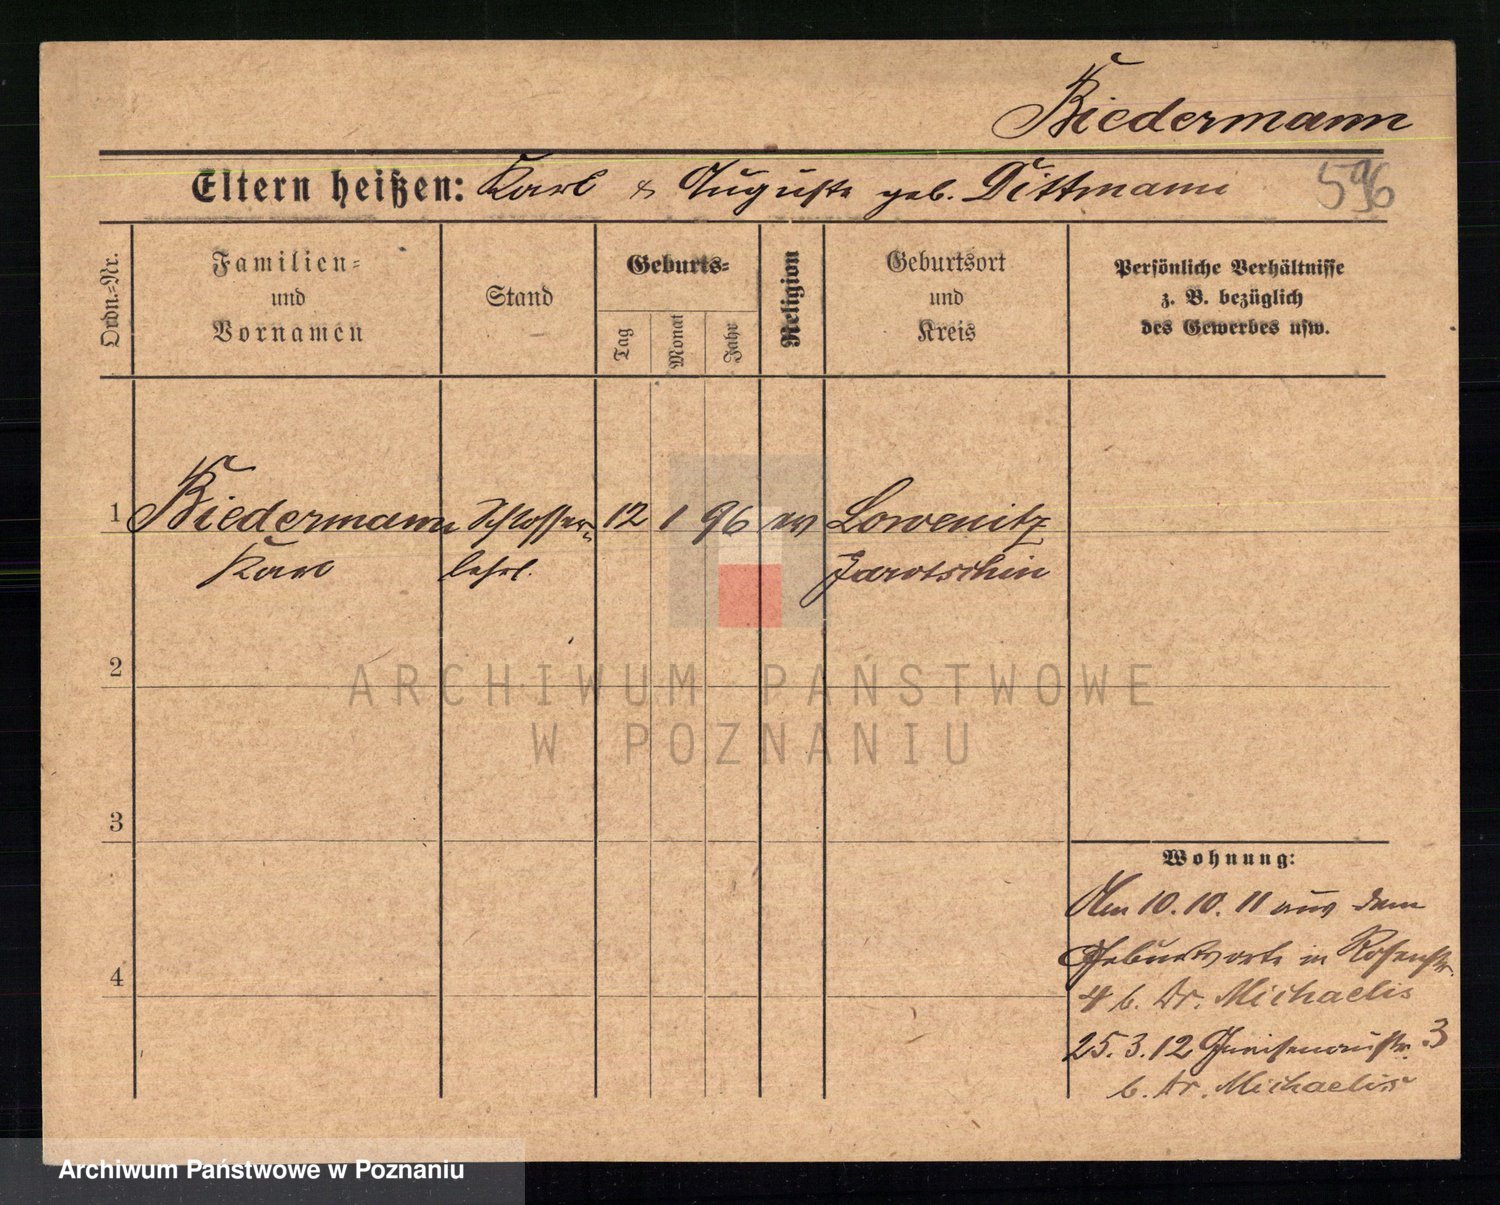 Biedermann
Eltern heißen: Karl & Auguste geb. Dittmann
596
Ordn.=Nr.
Familien=
und
Vornamen
Stand
Geburts=
Tag
Monat
Jahr
Religion
Geburtsort
und
Kreis
Persönliche Verhältnisse
z. B. bezüglich
des Gewerbes usw.
1 Biedermann Schlosser= 12 1 96 ev Lowenitz
Karl lehrl. Jarotschin
2
ARCHIWUM PAŃSTWOWE
W POZNANIU
3
Wohnung:
Am 10.10.11 aus dem
Geburtsorte in Rosenstr.
4
4 b. Dr. Michaelis
25.3.12 Gneisenaustr. 3
b. Dr. Michaelis
Archiwum Państwowe w Poznaniu